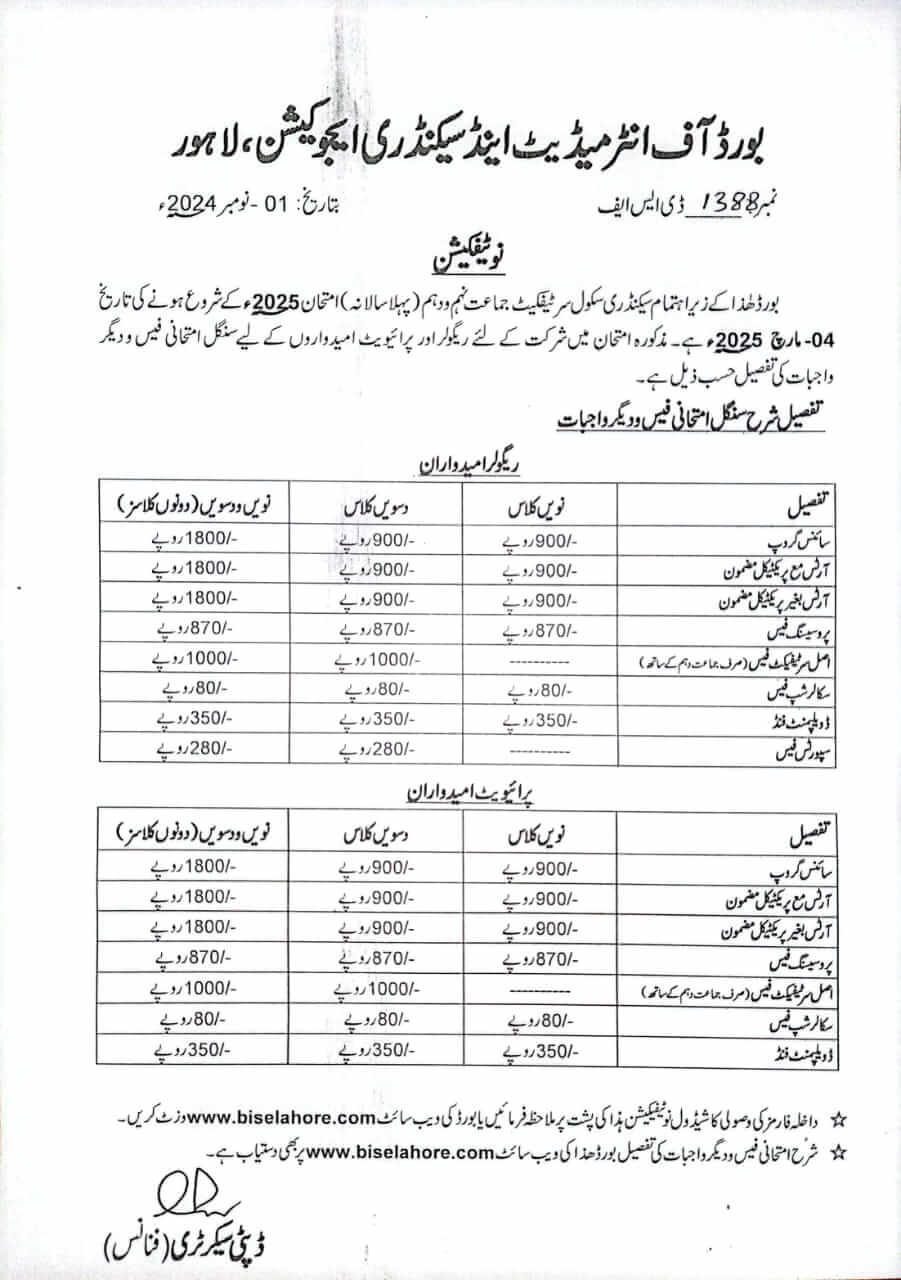 بورڈ آف انٹرمیڈیٹ اینڈ سیکنڈری ایجوکیشن، لاہور
نمبر 1388 ڈی ایس ایف بتاریخ: 01 - نومبر 2024ء
نوٹیفکیشن
بورڈ ھٰذا کے زیر اہتمام سیکنڈری سکول سرٹیفکیٹ جماعت نہم و دہم (پہلا سالانہ) امتحان 2025ء کے شروع ہونے کی تاریخ
04- مارچ 2025ء ہے۔ مذکورہ امتحان میں شرکت کے لئے ریگولر اور پرائیویٹ امیدواروں کے لیے سنگل امتحانی فیس و دیگر
واجبات کی تفصیل حسب ذیل ہے۔
تفصیل شرح سنگل امتحانی فیس و دیگر واجبات
ریگولر امیدواران
تفصیل نویں کلاس دسویں کلاس نویں و دسویں (دونوں کلاسز)
سائنس گروپ 900/- روپے 900/- روپے 1800/- روپے
آرٹس مع پریکٹیکل مضمون 900/- روپے 900/- روپے 1800/- روپے
آرٹس بغیر پریکٹیکل مضمون 900/- روپے 900/- روپے 1800/- روپے
پروسیسنگ فیس 870/- روپے 870/- روپے 870/- روپے
اصل سرٹیفکیٹ فیس (صرف جماعت دہم کے ساتھ) ---------- 1000/- روپے 1000/- روپے
سکالرشپ فیس 80/- روپے 80/- روپے 80/- روپے
ڈویلپمنٹ فنڈ 350/- روپے 350/- روپے 350/- روپے
سپورٹس فیس ---------- 280/- روپے 280/- روپے
پرائیویٹ امیدواران
تفصیل نویں کلاس دسویں کلاس نویں و دسویں (دونوں کلاسز)
سائنس گروپ 900/- روپے 900/- روپے 1800/- روپے
آرٹس مع پریکٹیکل مضمون 900/- روپے 900/- روپے 1800/- روپے
آرٹس بغیر پریکٹیکل مضمون 900/- روپے 900/- روپے 1800/- روپے
پروسیسنگ فیس 870/- روپے 870/- روپے 870/- روپے
اصل سرٹیفکیٹ فیس (صرف جماعت دہم کے ساتھ) ---------- 1000/- روپے 1000/- روپے
سکالرشپ فیس 80/- روپے 80/- روپے 80/- روپے
ڈویلپمنٹ فنڈ 350/- روپے 350/- روپے 350/- روپے
☆ داخلہ فارمز کی وصولی کا شیڈول نوٹیفکیشن ہذا کی پشت پر ملاحظہ فرمائیں یا بورڈ کی ویب سائٹ www.biselahore.com وزٹ کریں۔
☆ شرح امتحانی فیس و دیگر واجبات کی تفصیل بورڈ ھذا کی ویب سائٹ www.biselahore.com پر بھی دستیاب ہے۔
ڈپٹی سیکرٹری (فنانس)